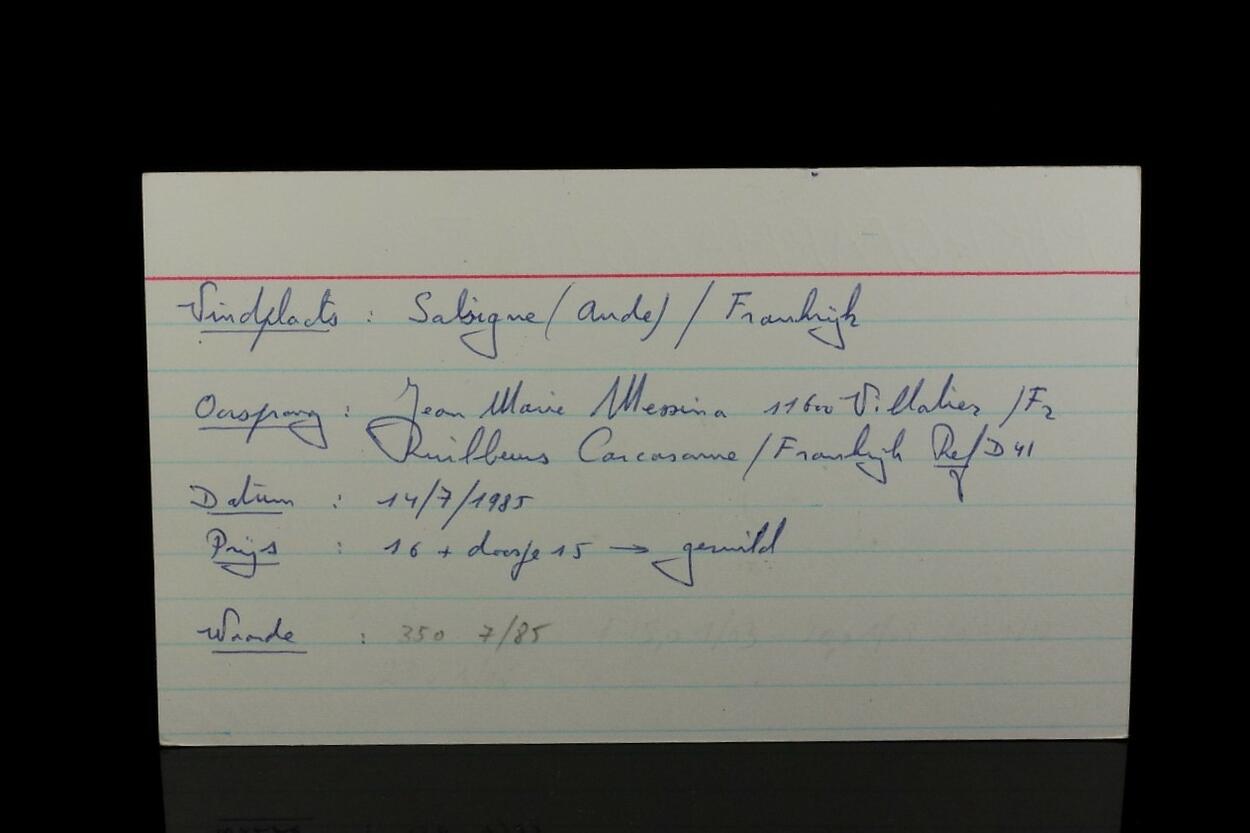 Vindplaats : Salsigne (Aude) / Frankrijk
Oorsprong : Jean Marie Messina 11600 Villalier / Fr
Ruilbeurs Carcasonne / Frankrijk Ref D 41
Datum : 14/7/1985
Prijs : 16 + doosje 15 → geruild
Waarde : 350 7/85